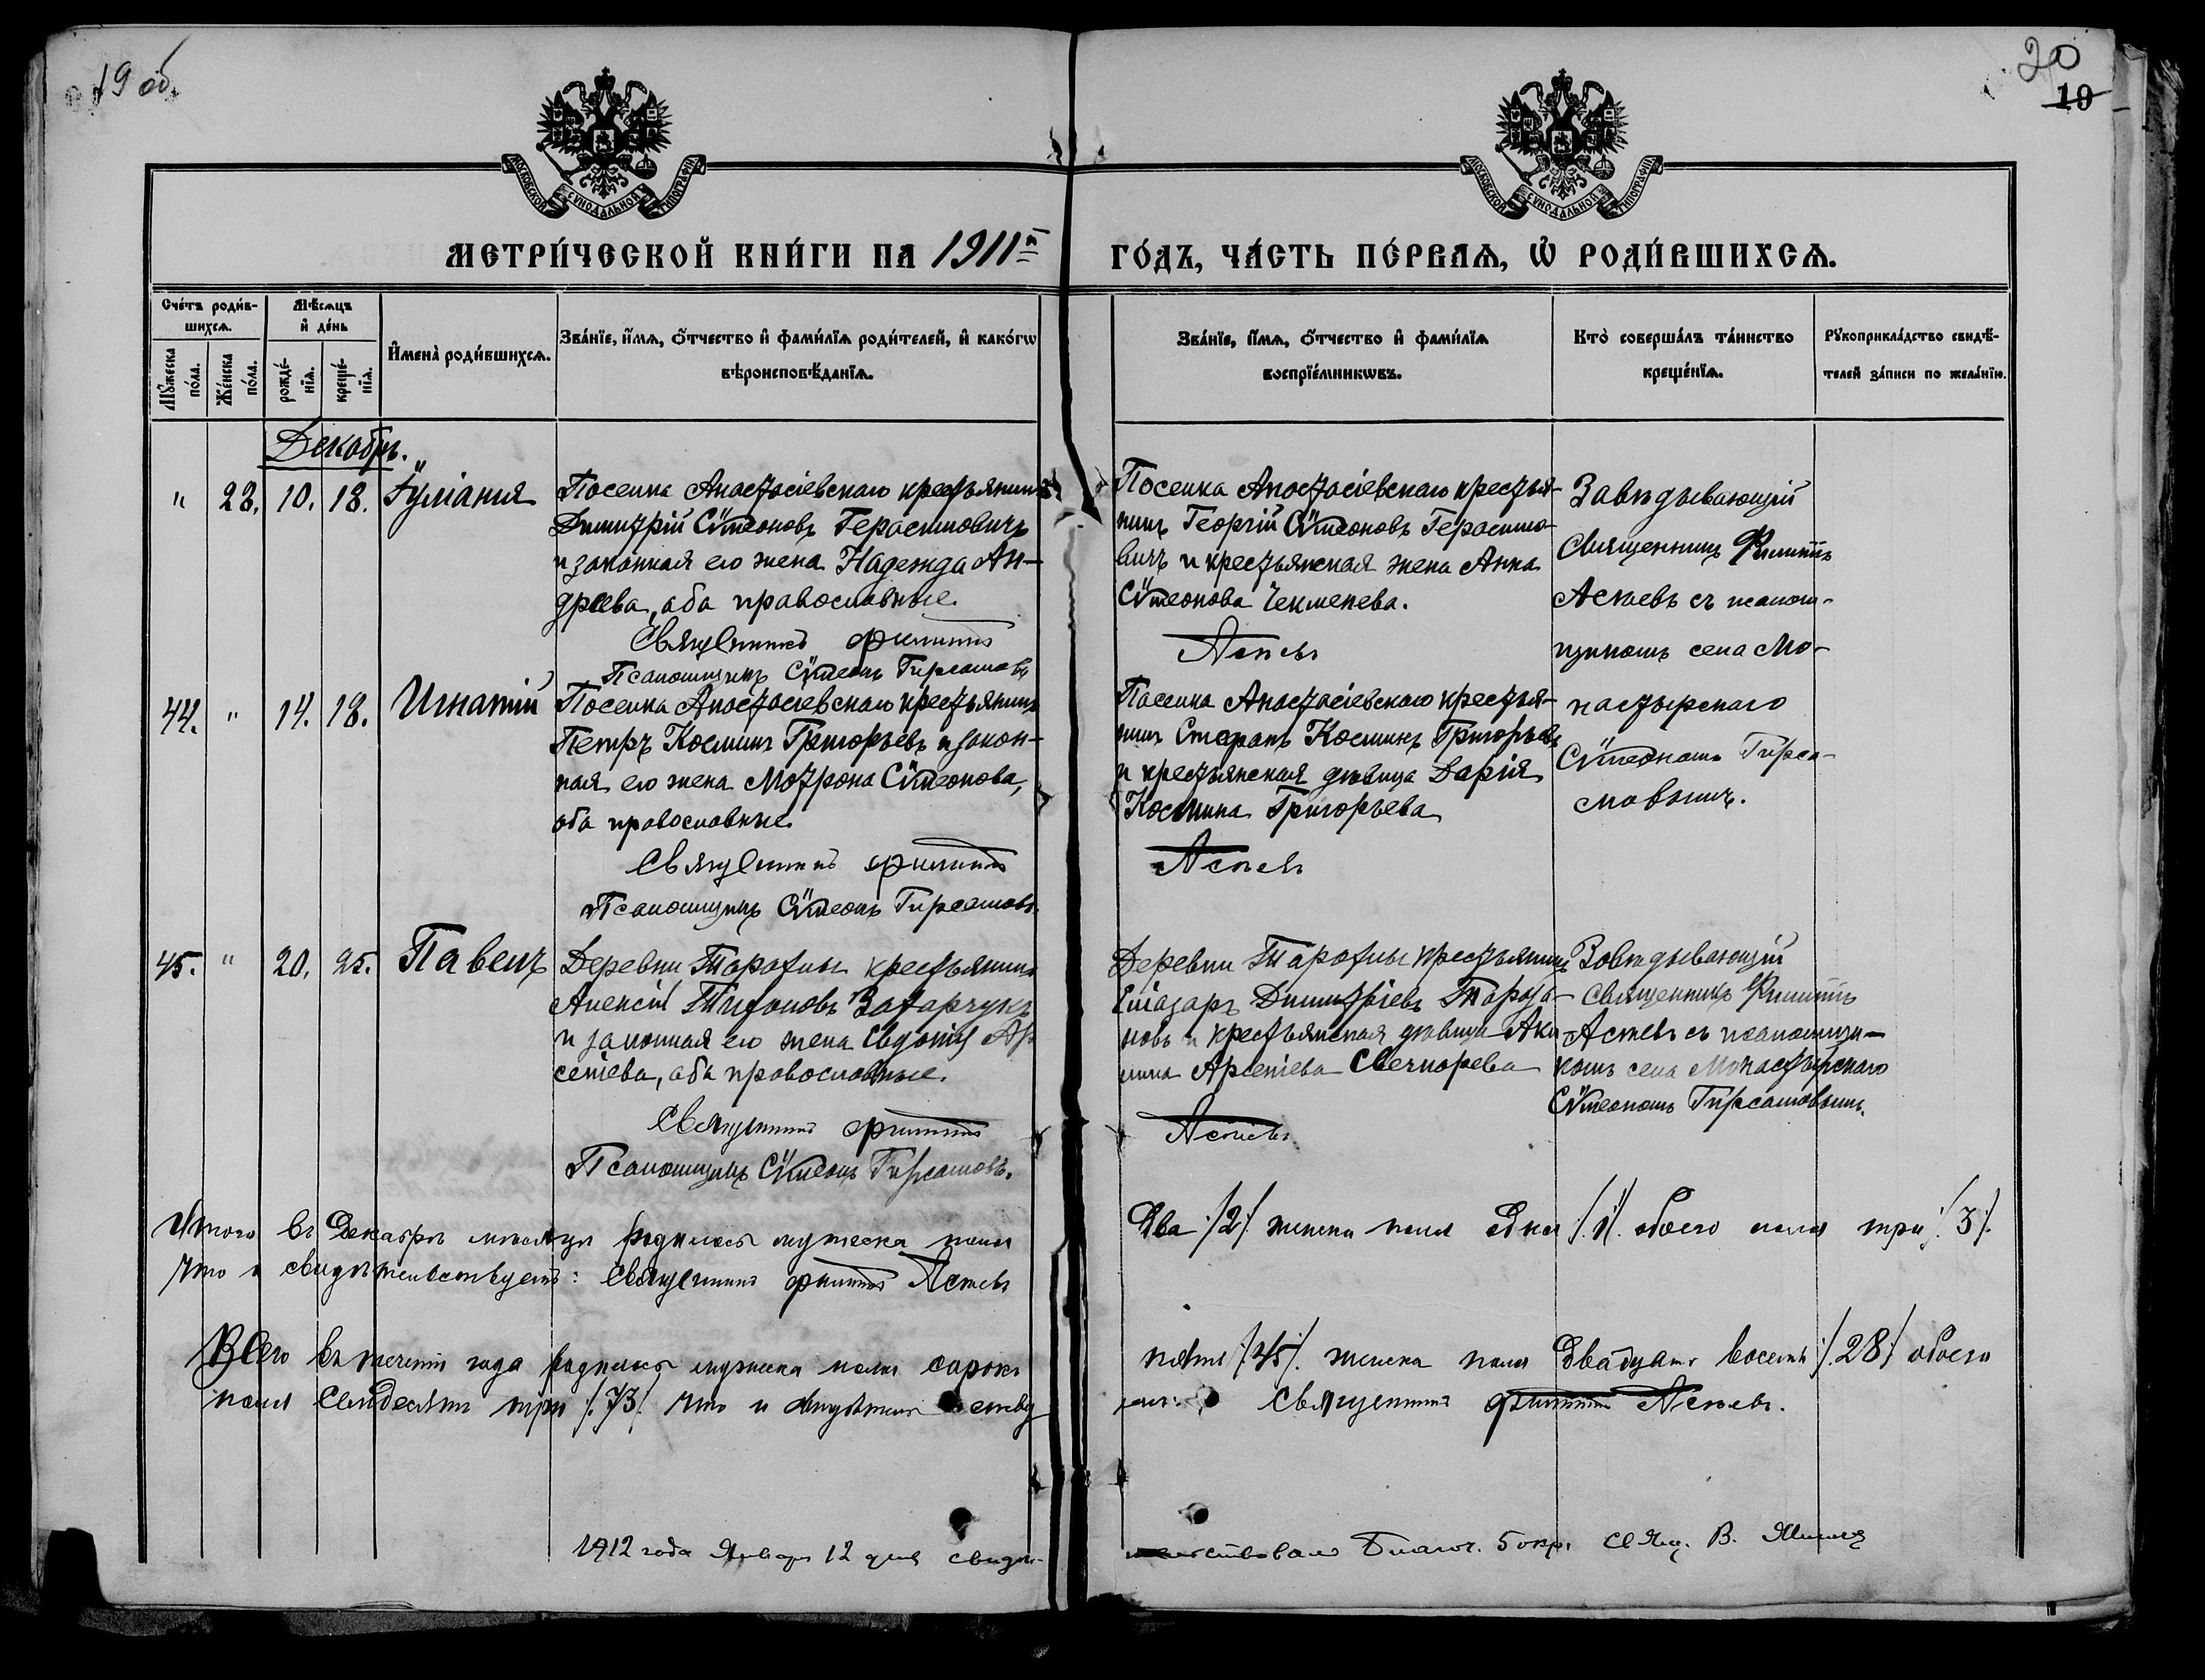 19 об.
20
19
МОСКОВСКОЙ СѴНОДАЛЬНОЙ ТИПОГРАФІИ
МОСКОВСКОЙ СѴНОДАЛЬНОЙ ТИПОГРАФІИ
МЕТРИ́ЧЕСКОЙ КНИ́ГИ НА 1911й
ГО́ДЪ, ЧА́СТЬ ПЕ́РВАѦ, Ѡ҆ РОДИ́ВШИХСѦ.
Сче́тъ роди́в-
шихсѧ.
Мѣ́сѧцъ
и҆ де́нь
Мꙋ́жеска
по́ла.
Же́нска
по́ла.
рожде́-
нїѧ.
креще́-
нїѧ.
И҆мена̀ роди́вшихсѧ.
Зва́нїе, и҆́мѧ, ѻ҆́тчество и҆ фами́лїѧ роди́телей, и҆ како́гѡ
вѣроисповѣ́данїѧ.
Зва́нїе, и҆́мѧ, ѻ҆́тчество и҆ фами́лїѧ
воспрїе́мникѡвъ.
Кто̀ соверша́лъ та́инство
креще́нїѧ.
Рꙋкоприкла́дство свидѣ́-
телей за́писи по жела́нїю.
Декабрь.
" 28. 10. 18. Іуліанія
Поселка Анастасіевскаго крестьянинъ
Димитрій Сѵмеоновъ Герасимовичъ
и законная его жена Надежда Ан-
дреева, оба православные.
Священникъ Филиппъ
Псаломщикъ Сѵмеонъ Гирсамовъ
Поселка Анастасіевскаго крестья-
нинъ Георгій Сѵмеоновъ Герасимо-
вичъ и крестьянская жена Анна
Сѵмеонова Чекменева.
Асѣевъ
Завѣдывающій
Священникъ Филиппъ
Асѣевъ съ псалом-
щикомъ села Мо-
настырскаго
Сѵмеономъ Гирса-
мовымъ.
44. " 14. 18. Игнатій
Поселка Анастасіевскаго крестьянинъ
Петръ Косминъ Григорьевъ и закон-
ная его жена Матрона Сѵмеонова,
оба православные.
Священникъ Филиппъ
Псаломщикъ Сѵмеонъ Гирсамовъ.
Поселка Анастасіевскаго крестья-
нинъ Стефанъ Косминъ Григорьевъ
и крестьянская дѣвица Дарія
Космина Григорьева
Асѣевъ
45. " 20. 25. Павелъ
Деревни крестьянинъ
Алексій Тихоновъ Захарчукъ
и законная его жена Евдокія Ар-
сеніева, оба православные.
Священникъ Филиппъ
Псаломщикъ Сѵмеонъ Гирсамовъ.
Деревни крестьянинъ
Елеазаръ Димитріевъ
и крестьянская дѣвица Аки-
лина Арсеніева
Асѣевъ
Завѣдывающій
священникъ Филиппъ
Асѣевъ съ псаломщи-
комъ села Монастырскаго
Сѵмеономъ Гирсамовымъ.
Итого въ Декабрѣ мѣсяцѣ родилось мужеска пола
два /2/ женска пола одна /1/. обоего пола три /3/.
Что и свидѣтельствуетъ: Священникъ Филиппъ Асѣевъ
Всего въ теченіи года родилось мужеска пола сорокъ
пять /45/. женска пола двадцать восемь /28/ обоего
пола семьдесятъ три /73/. что и
Священникъ Филиппъ Асѣевъ.
1912 года Января 12 дня свидѣ-
тельствовалъ Благоч. 5 окр. Свящ. В.